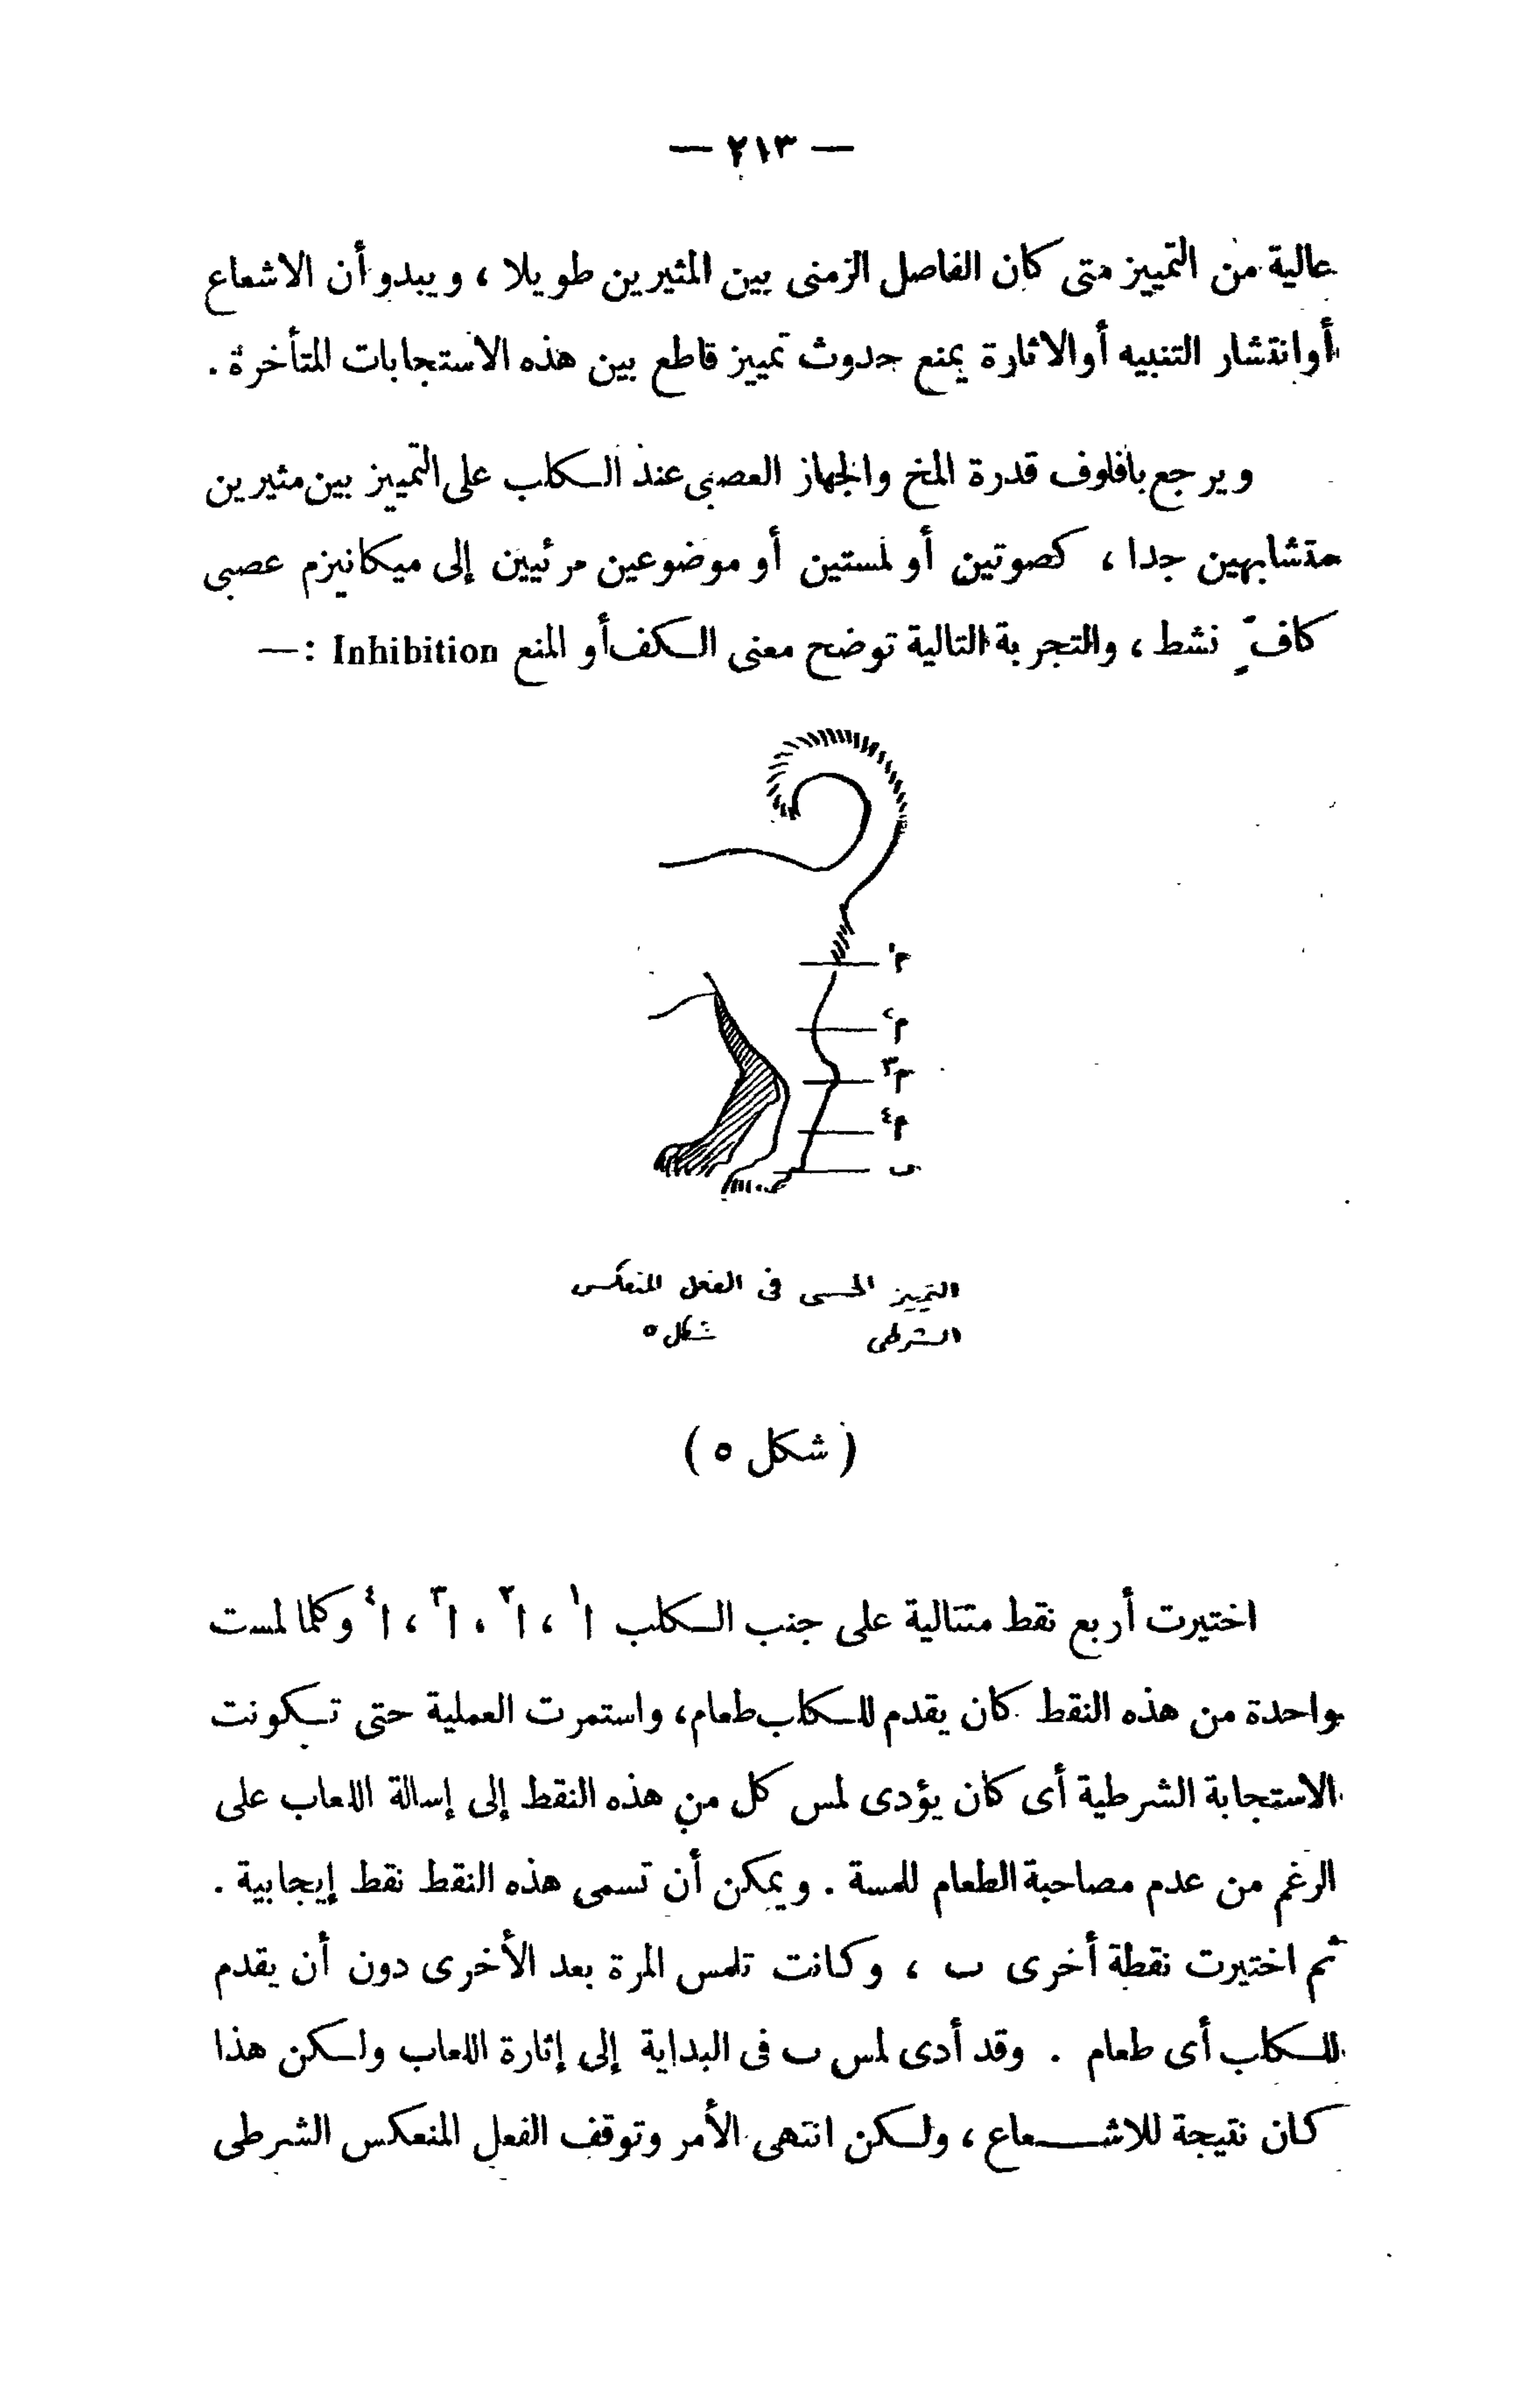 — ٢١٣ —
عالية من التمييز متى كان الفاصل الزمنى بين المثيرين طويلا ، ويبدو أن الاشعاع
أو انتشار التنبيه أو الاثارة يمنع حدوث تمييز قاطع بين هذه الاستجابات المتأخرة .
ويرجع بافلوف قدرة المخ والجهاز العصبى عند الكلب على التمييز بين مثيرين
متشابهين جدا ، كصوتين أو لمستين أو موضوعين مرئيين إلى ميكانيزم عصبى
كافّ نشط ، والتجربة التالية توضح معنى الكف أو المنع Inhibition : —
م١
م٢
م٣
م٤
ب
التمييز الحسى فى الفعل المنعكس
الشرطى شكل ٥
( شكل ٥ )
اختيرت أربع نقط متتالية على جنب الكلب ا١ ، ا٢ ، ا٣ ، ا٤ وكلما لمست
واحدة من هذه النقط كان يقدم للكلب طعام ، واستمرت العملية حتى تكونت
الاستجابة الشرطية أى كان يؤدى لمس كل من هذه النقط إلى إسالة اللعاب على
الرغم من عدم مصاحبة الطعام للمسة . ويمكن أن تسمى هذه النقط نقط إيجابية .
ثم اختيرت نقطة أخرى ب ، وكانت تلمس المرة بعد الأخرى دون أن يقدم
للكلب أى طعام . وقد أدى لمس ب فى البداية إلى إثارة اللعاب ولكن هذا
كان نتيجة للاشعاع ، ولكن انتهى الأمر وتوقف الفعل المنعكس الشرطى